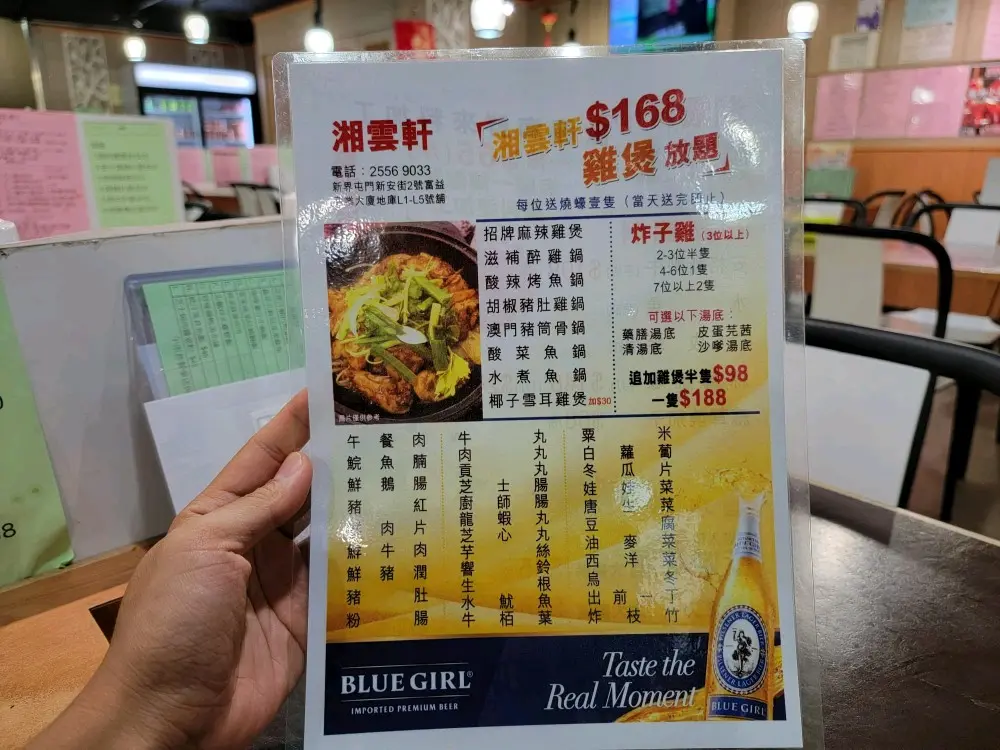 湘雲軒
電話：2556 9033
新界屯門新安街2號富益
業大廈地庫L1-L5號舖
「湘雲軒$168
雞煲放題」
每位送燒蠔壹隻（當天送完即止）
圖片僅供參考
招牌麻辣雞煲
滋補醉雞鍋
酸辣烤魚鍋
胡椒豬肚雞鍋
澳門豬筒骨鍋
酸菜魚鍋
水煮魚鍋
椰子雪耳雞煲加$30
炸子雞（3位以上）
2-3位半隻
4-6位1隻
7位以上2隻
可選以下湯底：
藥膳湯底 皮蛋芫茜
清湯底 沙爹湯底
追加雞煲半隻$98
一隻$188
午餐肉
鯇魚腩
鮮鵝腸
豬紅
鮮肉片
鮮牛肉
鮮豬潤
豬肚
粉腸
牛丸
肉丸
貢丸
芝士腸
廚師腸
龍蝦丸
芝心丸
芋絲
響鈴
生根
水魷魚
牛栢葉
粟米
白蘿蔔
冬瓜片
娃娃菜
唐生菜
豆腐
油麥菜
西洋菜
烏冬
出前一丁
炸枝竹
BLUE GIRL®
IMPORTED PREMIUM BEER
Taste the
Real Moment
BLUE GIRL